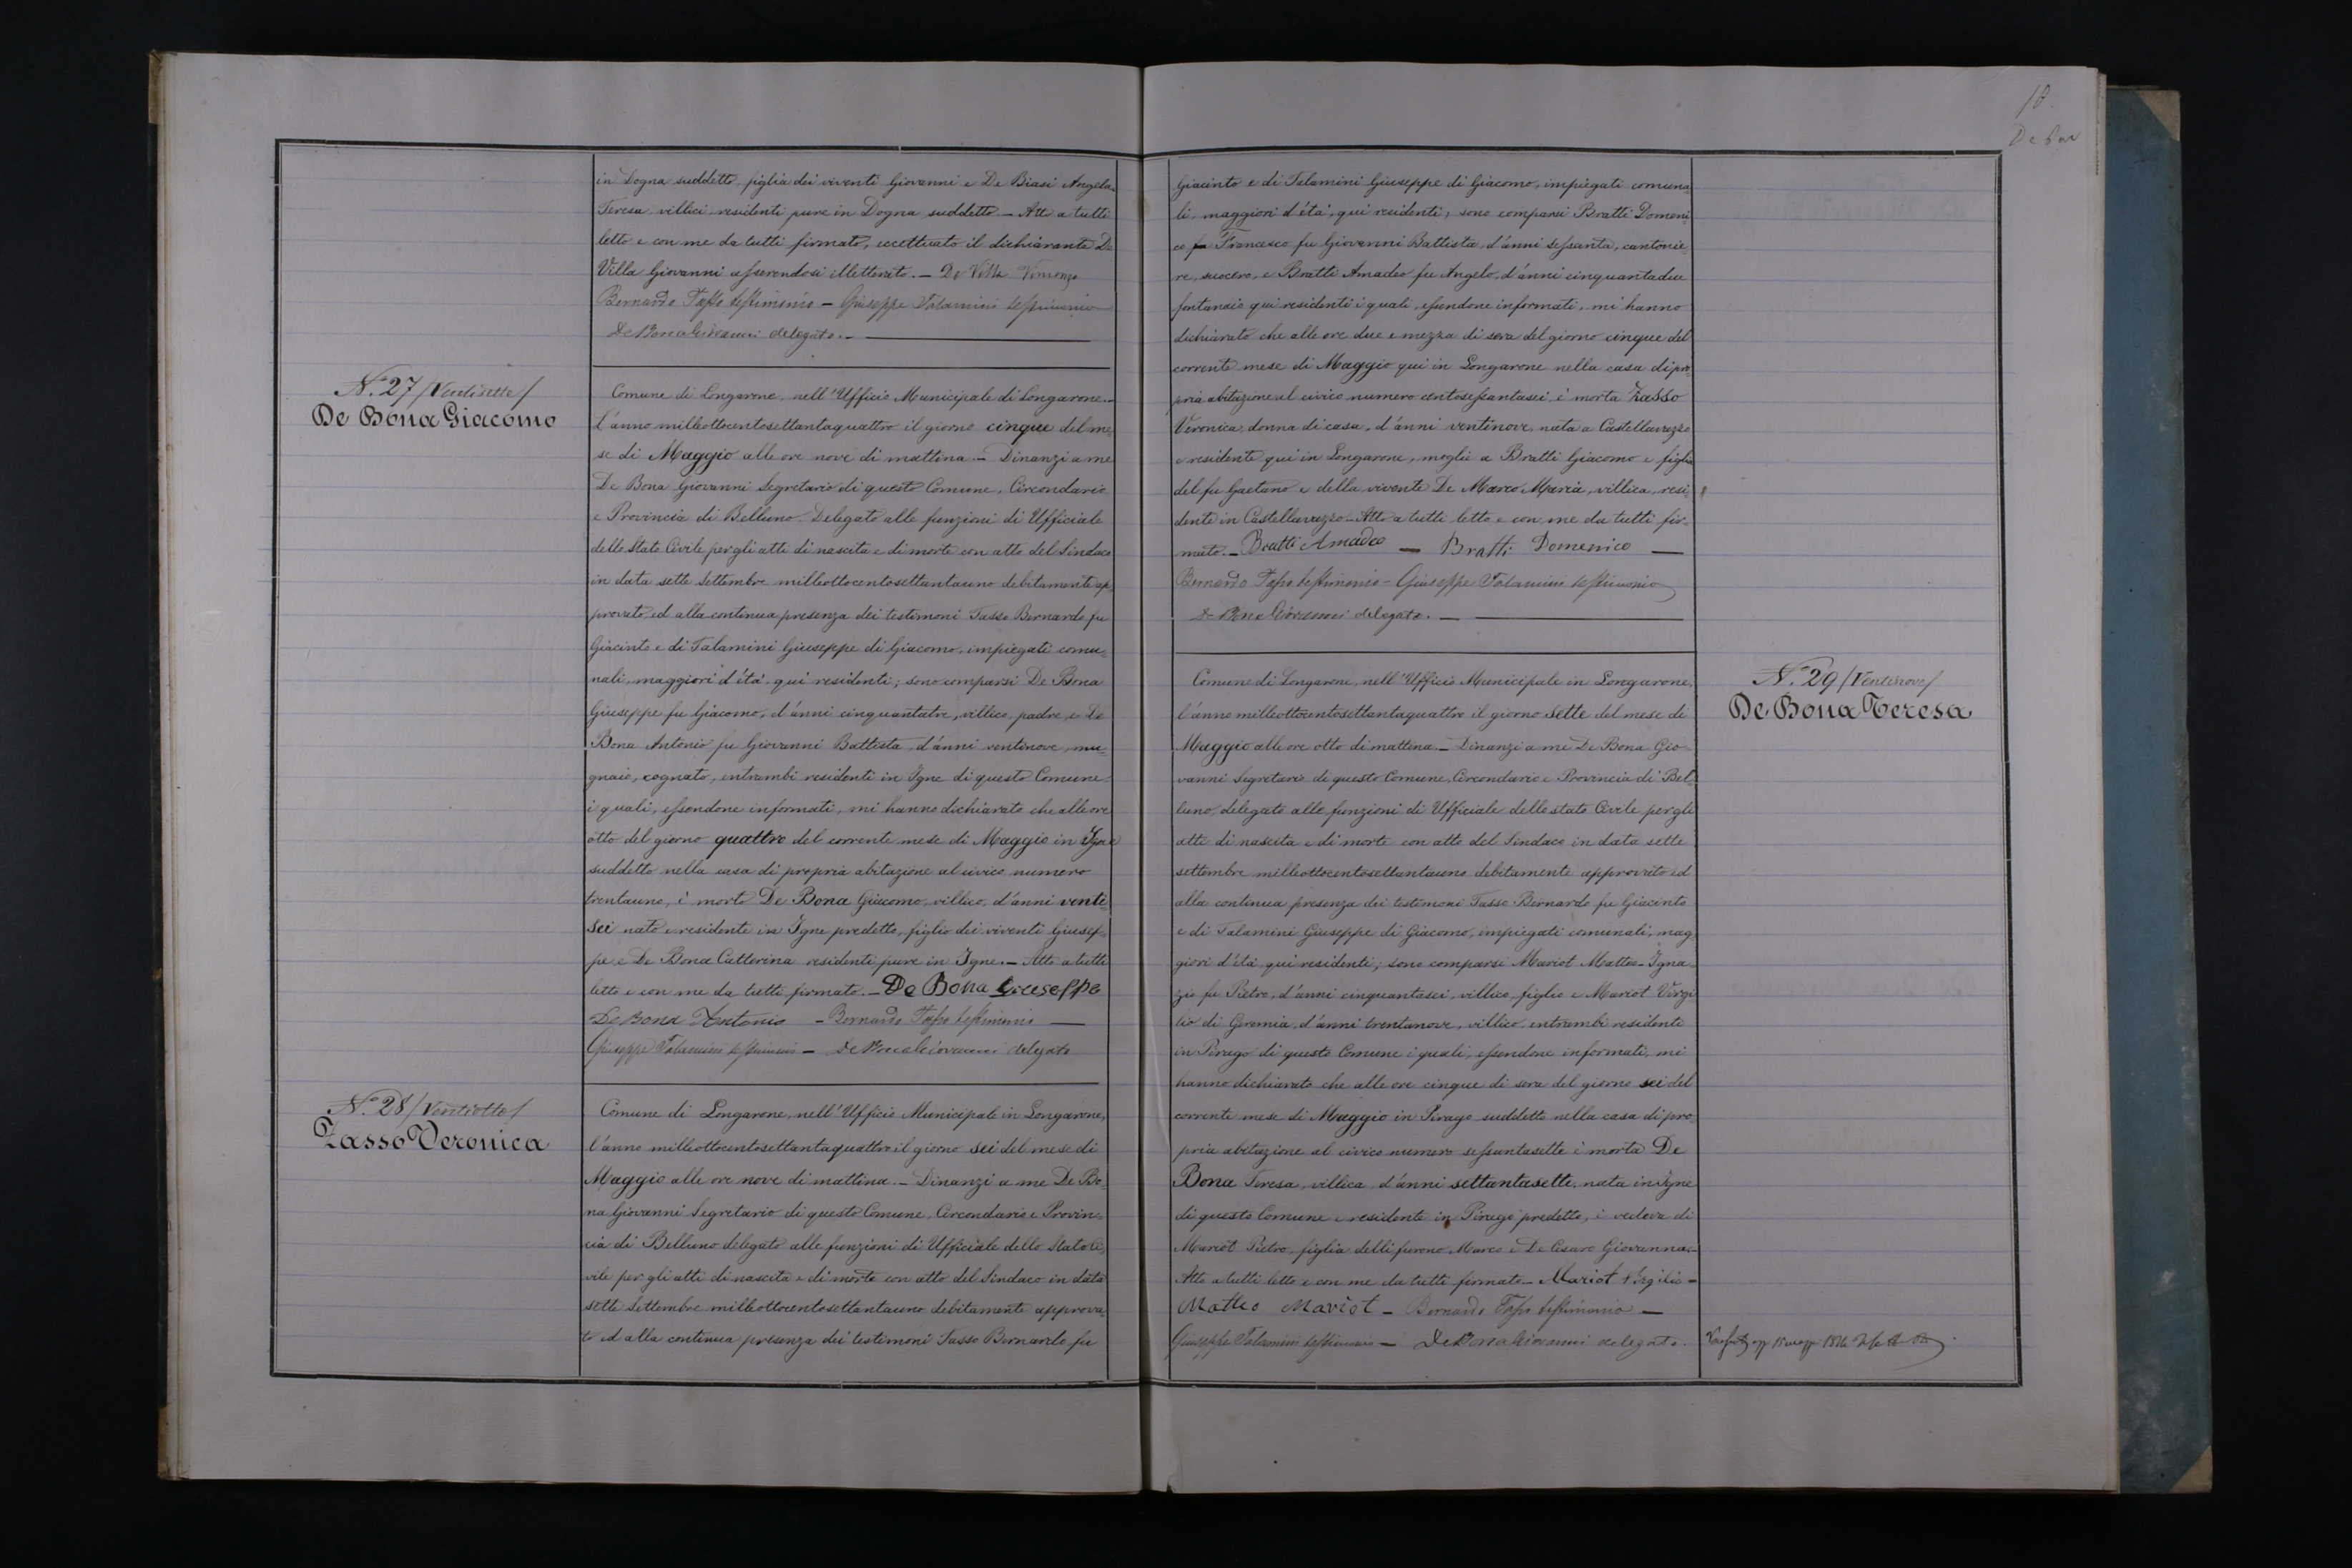 18.
in Dogna suddetto, figlia dei viventi Giovanni e De Biasi Angela
Teresa, villici residenti pure in Dogna suddetto. — Atto a tutti
letto e con me da tutti firmato, eccettuato il dichiarante De
Villa Giovanni asserendosi illetterato. — De Villa Vincenzo
Bernardo Tasso testimonio — Giuseppe Talamini testimonio
De Bona Giovanni delegato. —
N.º 27 / Ventisette /
De Bona Giacomo
Comune di Longarone, nell'Uffficio Municipale di Longarone. —
l'anno milleottocentosettantaquattro il giorno cinque del me-
se di Maggio alle ore nove di mattina. — Dinanzi a me
De Bona Giovanni Segretario di questo Comune, Circondario
e Provincia di Belluno. Delegato alle funzioni di Ufficiale
dello Stato Civile per gli atti di nascita e di morte con atto del Sindaco
in data sette Settembre milleottocentosettantauno debitamente ap-
provato, ed alla continua presenza dei testimoni Tasso Bernardo fu
Giacinto e di Talamini Giuseppe di Giacomo, impiegati comu-
nali, maggiori d'età, qui residenti; sono comparsi De Bona
Giuseppe fu Giacomo, d'anni cinquantatre, villico, padre, e De
Bona Antonio fu Giovanni Battista, d'anni ventinove, mu-
gnaio, cognato, entrambi residenti in Igne di questo Comune,
i quali, essendone informati, mi hanno dichiarato che alle ore
otto del giorno quattro del corrente mese di Maggio in Igne
suddetto nella casa di propria abitazione al civico numero
trentauno, è morto De Bona Giacomo, villico, d'anni venti-
sei nato e residente in Igne predetto, figlio dei viventi Giusep-
pe e De Bona Catterina residenti pure in Igne. — Atto a tutti
letto e con me da tutti firmato. — De Bona Giuseppe
De Bona Antonio — Bernardo Tasso testimonio —
Giuseppe Talamini testimonio — De Bona Giovanni delegato
N.º 28 / Ventiotto /
Tasso Veronica
Comune di Longarone, nell'Ufficio Municipale in Longarone,
l'anno milleottocentosettantaquattro il giorno sei del mese di
Maggio alle ore nove di mattina. — Dinanzi a me De Bo-
na Giovanni Segretario di questo Comune, Circondario e Provin-
cia di Belluno delegato alle funzioni di Ufficiale dello Stato Ci-
vile per gli atti di nascita e di morte con atto del Sindaco in data
sette Settembre milleottocentosettantauno debitamente approva-
to ed alla continua presenza dei testimoni Tasso Bernardo fu
Giacinto e di Talamini Giuseppe di Giacomo, impiegati comuna-
li, maggiori d'età, qui residenti; sono comparsi Bratti Domeni-
co fu Francesco fu Giovanni Battista, d'anni sessanta, cantonie-
re, suocero, e Bratti Amadeo fu Angelo, d'anni cinquantadue
qui residenti i quali, essendone informati, mi hanno
dichiarato che alle ore due e mezza di sera del giorno cinque del
corrente mese di Maggio qui in Longarone nella casa di pro-
pria abitazione al civico numero centosessantasei è morta Tasso
Veronica, donna di casa, d'anni ventinove, nata a Castellavazzo
e residente qui in Longarone, moglie a Bratti Giacomo e figlia
del fu Gaetano e della vivente De Marco Maria, villica, resi-
dente in Castellavazzo. — Atto a tutti letto e con me da tutti fir-
mato. — Bratti Amadeo — Bratti Domenico —
Bernardo Tasso testimonio — Giuseppe Talamini testimonio
De Bona Giovanni delegato. —
N.º 29 / Ventinove /
De Bona Teresa
Comune di Longarone, nell'Ufficio Municipale in Longarone,
l'anno milleottocentosettantaquattro il giorno sette del mese di
Maggio alle ore otto di mattina. — Dinanzi a me De Bona Gio-
vanni Segretario di questo Comune, Circondario e Provincia di Bel-
luno, delegato alle funzioni di Ufficiale dello stato Civile per gli
atti di nascita e di morte con atto del Sindaco in data sette
settembre milleottocentosettantauno debitamente approvato ed
alla continua presenza dei testimoni Tasso Bernardo fu Giacinto
e di Talamini Giuseppe di Giacomo, impiegati comunali, mag-
giori d'età qui residenti; sono comparsi Mariot Matteo-Igna-
zio fu Pietro, d'anni cinquantasei, villico, figlio e Mariot Virgi-
lio di Geremia, d'anni trentanove, villico entrambi residenti
in Pirago di questo Comune i quali, essendone informati, mi
hanno dichiarato che alle ore cinque di sera del giorno sei del
corrente mese di Maggio in Pirago suddetto nella casa di pro-
pria abitazione al civico numero sessantasette è morta De
Bona Teresa, villica, d'anni settantasette, nata in Igne
di questo Comune e residente in Pirago predetto, è vedova di
Mariot Pietro, figlia delli furono Marco e De Cesaro Giovanna. —
Atto a tutti letto e con me da tutti firmato. — Mariot Virgilio —
Matteo Mariot — Bernardo Tasso testimonio —
Giuseppe Talamini testimonio — De Bona Giovanni delegato.